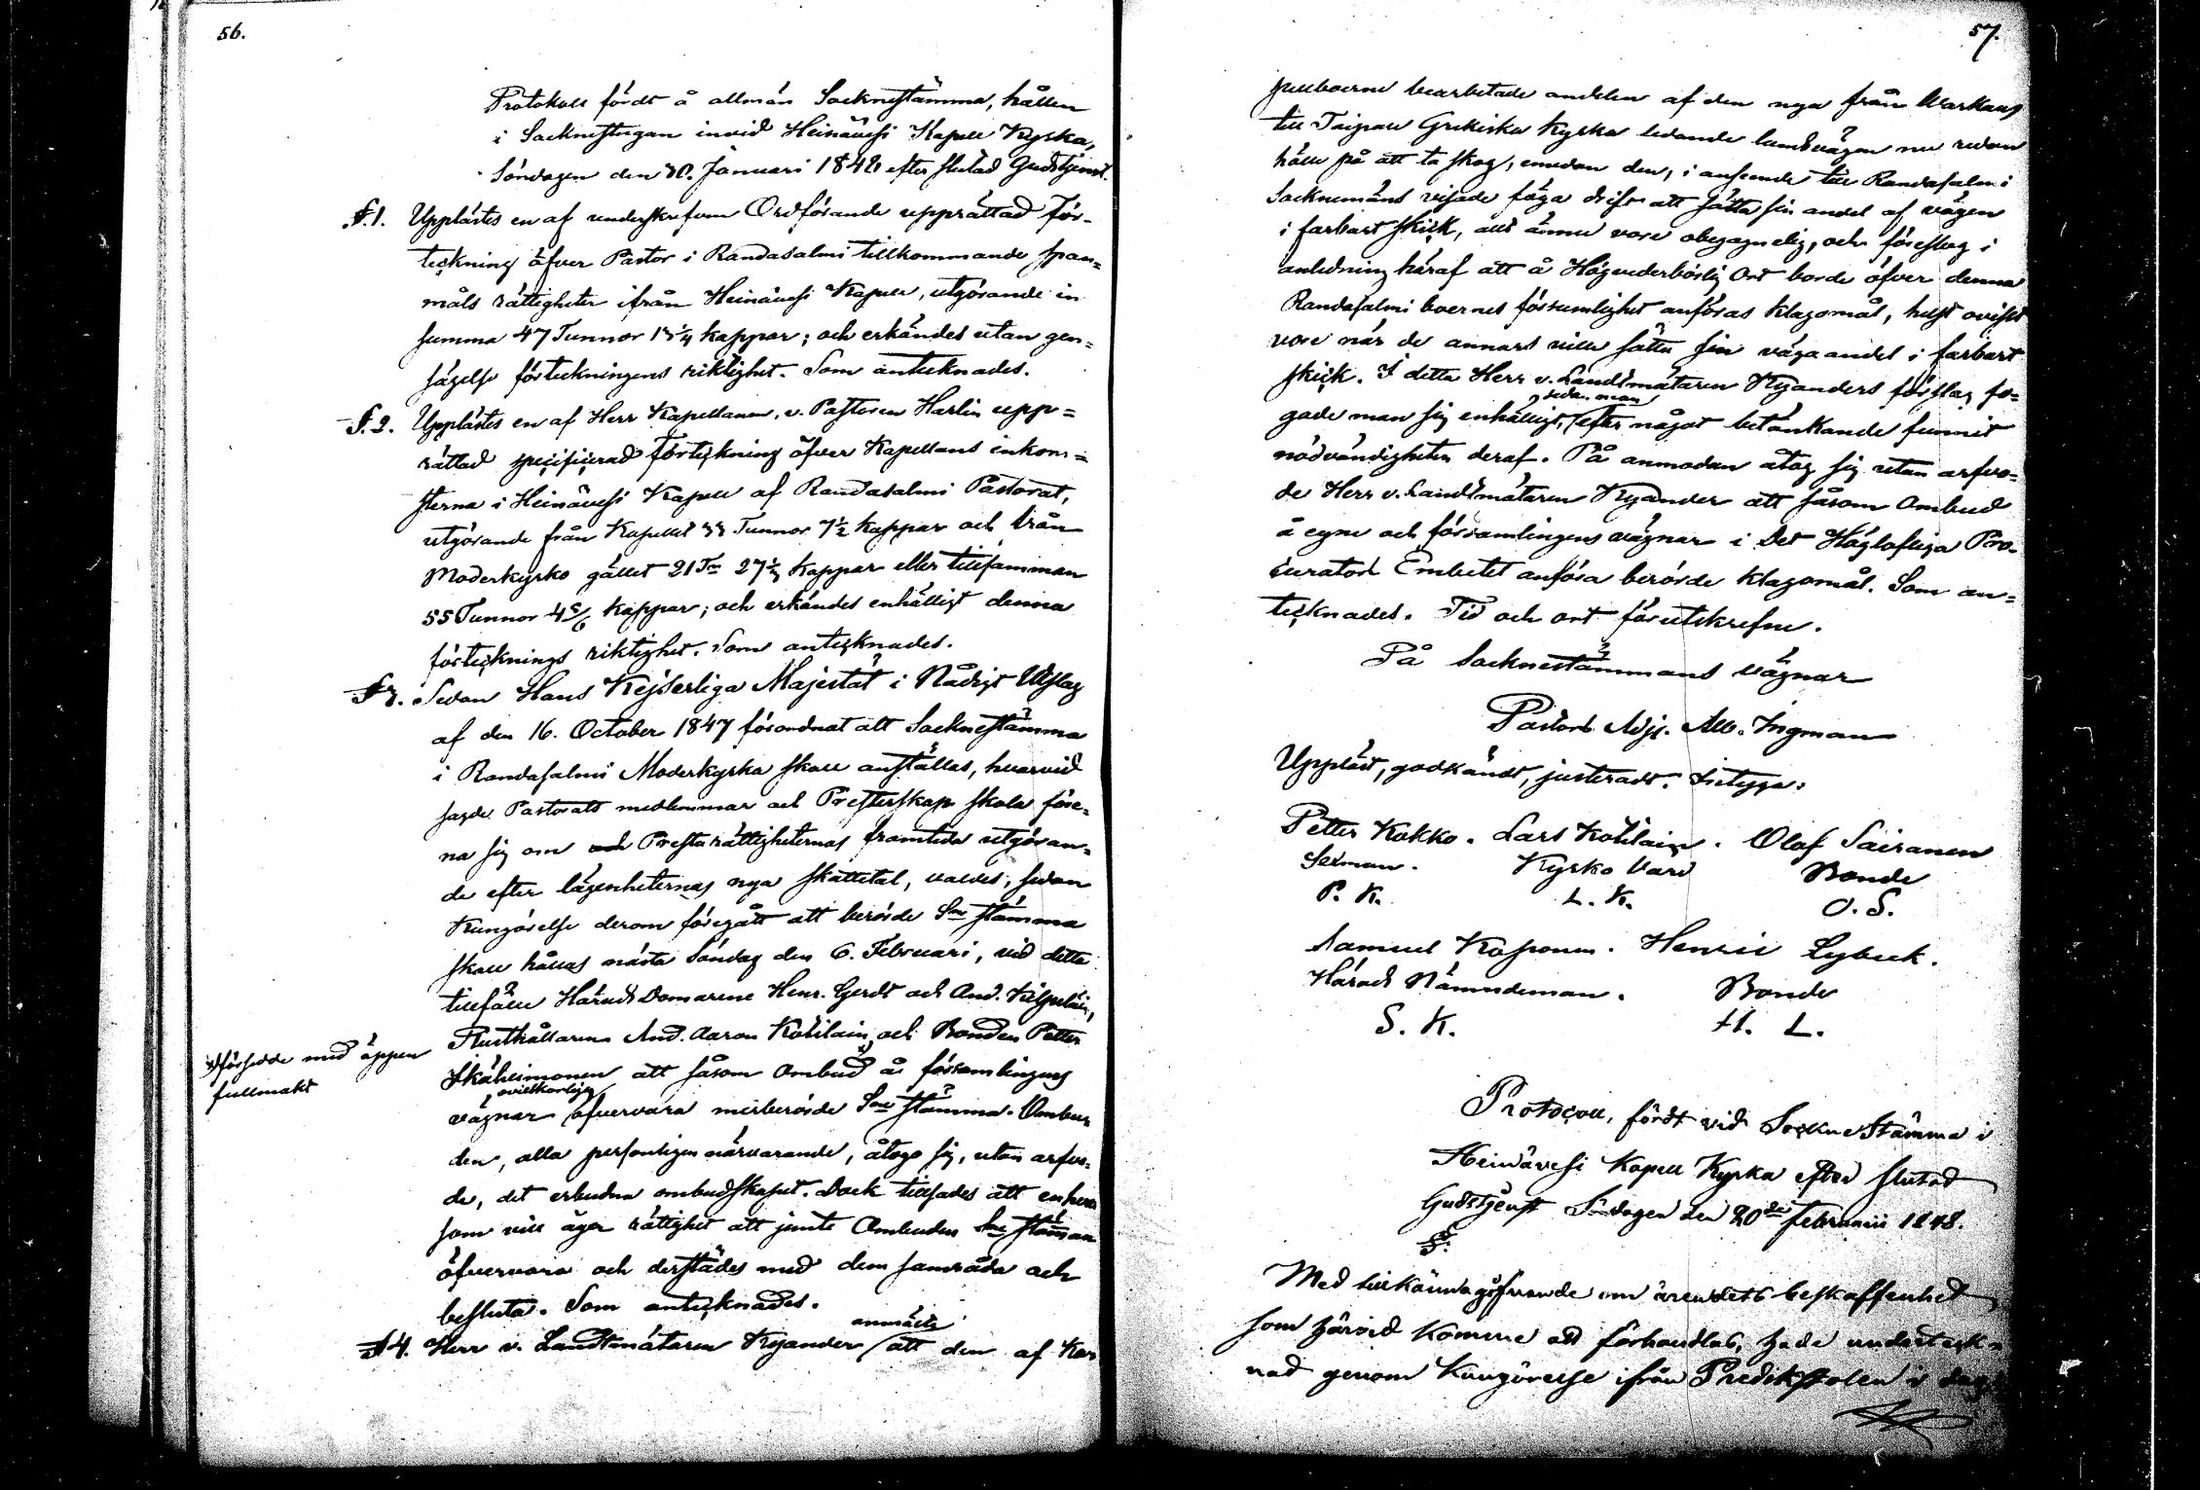 56.
Protokoll fördt å allmän Socknestämma, hållen
i Socknestugan invid Heinävesi Kapell Kyrka,
Söndagen den 30. Januari 1848 efter slutad Gudstjenst.
§.1. Upplästes en af underskrefven Ordförande upprättad för-
teckning öfver Pastor i Randasalmi tillkommande span=
måls rättigheter ifrån Heinävesi Kapell, utgörande in
summa 47 Tunnor 13 1/4 kappar; och erkändes utan gen=
sägelse förteckningens riktighet. Som antecknades.
§.2. Upplästes en af Herr Kapellanen, v. Pastoren Harlin upp=
rättad specificerad förteckning öfver Kapellans inkom=
sterna i Heinävesi Kapell af Randasalmi Pastorat,
utgörande från Kapellet 33 Tunnor 7 1/2 kappar och från
Moderkyrko gället 21 Tnr 27 1/3 kappar eller tillsamman
55 Tunnor 4 5/6 kappar; och erkändes enhälligt denna
förtecknings riktighet. Som antecknades.
§3. Sedan Hans Kejserliga Majestät i Nådigt Utslag
af den 16. October 1847 förordnat att Socknestämma
i Randasalmi Moderkyrka skall anställas, hvarvid
sagde Pastorats medlemmar och Presterskap skola före=
na sig om och Prestarättigheternas framtida utgöran=
de efter lägenheternas nya skattetal, valdes, sedan
Kungörelse derom föregått att berörde Sne stämma
skall hållas nästa Söndag den 6. Februari, vid detta
tillfälle Härads Domarene Henr. Gerdt och And. Kilpeläin,
Rusthållaren And. Aaron Kotilain, och Bonden Petter
x) försedde med öppen
fullmakt
Ikäheimonen att såsom Ombud x) å församlingens
ovilkorligen
vägnar öfvervara merberörde Sne stämma. Ombu=
den, alla personligen närvarande, åtogo sig, utan arfvo=
de, det erbudna ombudskapet. Dock tillsades att enhvar
som vill äger rättighet att jemte Ombuden Sne stämman
öfvervara och derstädes med dem samråda och
besluta. Som antecknades.
anmälte
§4. Herr v. Landtmätaren Kyander att den af Kar
57.
pellboerne bearbetade andelen af den nya från Warkaus
till Taipale Grekiska Kyrka ledande landsvägen nu redan
håller på att ta skog, emedan den, i anseende till Randasalmi
Socknemäns visade föga drift att sätta sin andel af vägen
i farbart skick, allt ännu vore obegagnelig, och föreslog i
anledning häraf att å Högvederbörlig Ort borde öfver denna
Randasalmi boernes försumlighet anföras klagomål, helst ovisst
vore när de annars ville sätta sin väga andel i farbart
skick. I detta Herr v. Landtmätaren Kyanders förslag fo=
sedan man
gade man sig enhälligt, efter något betänkande funnit
nödvändigheten deraf. På anmodan åtog sig utan arfvo=
de Herr v. Landtmätaren Kyander att såsom Ombud
å egne och församlingens vägnar i Det Höglofliga Pro-
curators Embetet anföra berörde klagomål. Som an=
tecknades. Tid och ort förutskrefne.
På Socknestämmans vägnar
Pastors Adj. Alb. Ingman
Uppläst, godkändt, justeradt. Intyga:
Petter Kokko. Lars Kotilain. Olof Sairanen
Sexman. Kyrko Värd Bonde
P. K. L. K. O. S.
Samuel Kosonen. Henric Lybeck.
Härads Nämndeman. Bonde
S. K. H. L.
Protocoll, fördt vid Sockne Stämma i
Heinävesi Kapell Kyrka efter slutad
Gudstjenst Söndagen den 20de Februarii 1848.
§.
Med tillkännagifvande om ärendets beskaffenhet
som härvid komme att förhandlas, hade underteck=
nad genom Kungörelse ifrån Predikstolen i dag